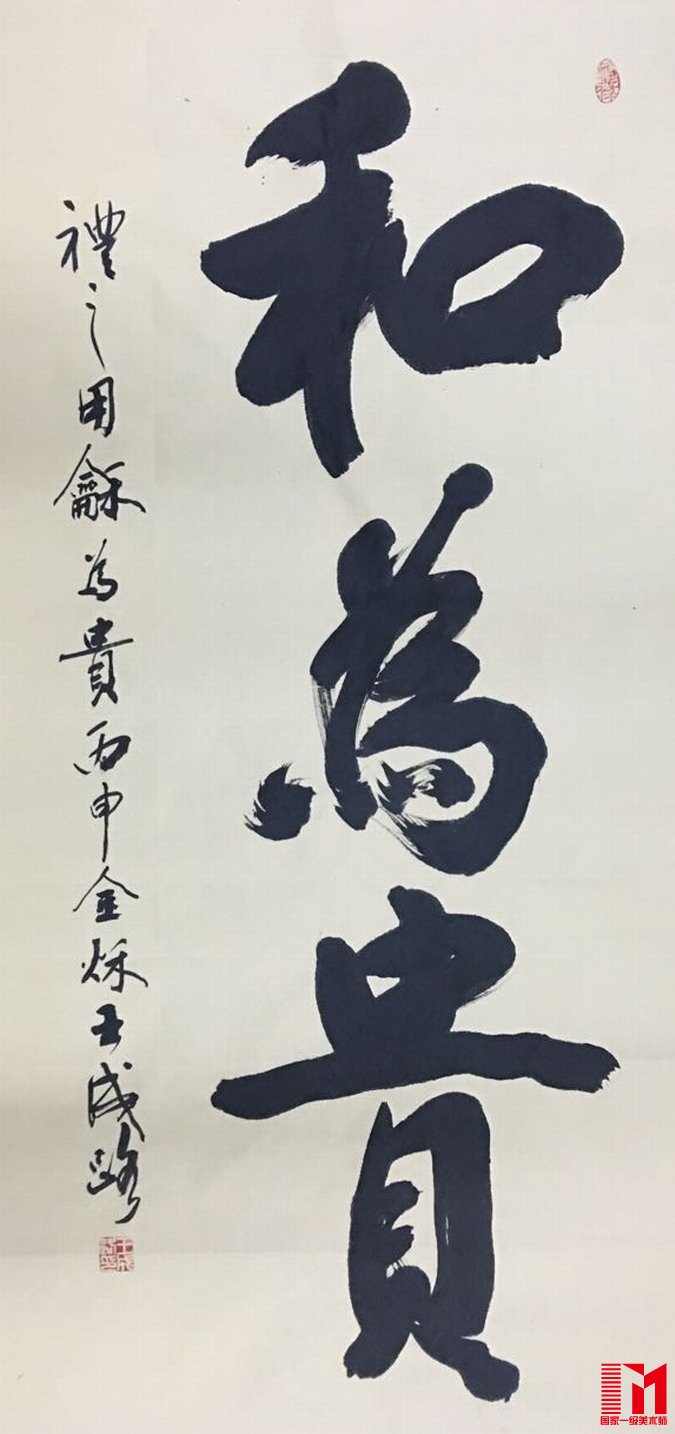 和為貴
禮之用龢為貴丙申金秌王成路
国家一级美术师